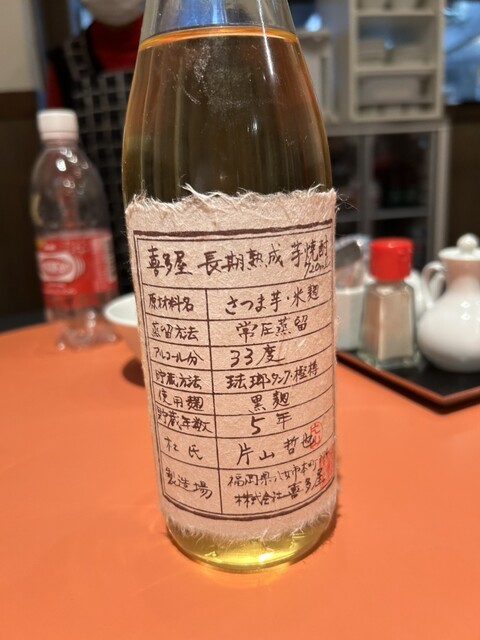 喜多屋 長期熟成 芋焼酎
720ml
原材料名 さつま芋・米麹
蒸留方法 常圧蒸留
アルコール分 33度
貯蔵方法 琺瑯タンク・樫樽
使用麹 黒麹
貯蔵年数 5年
杜氏 片山哲也
製造場 福岡県八女市本町
株式会社喜多屋